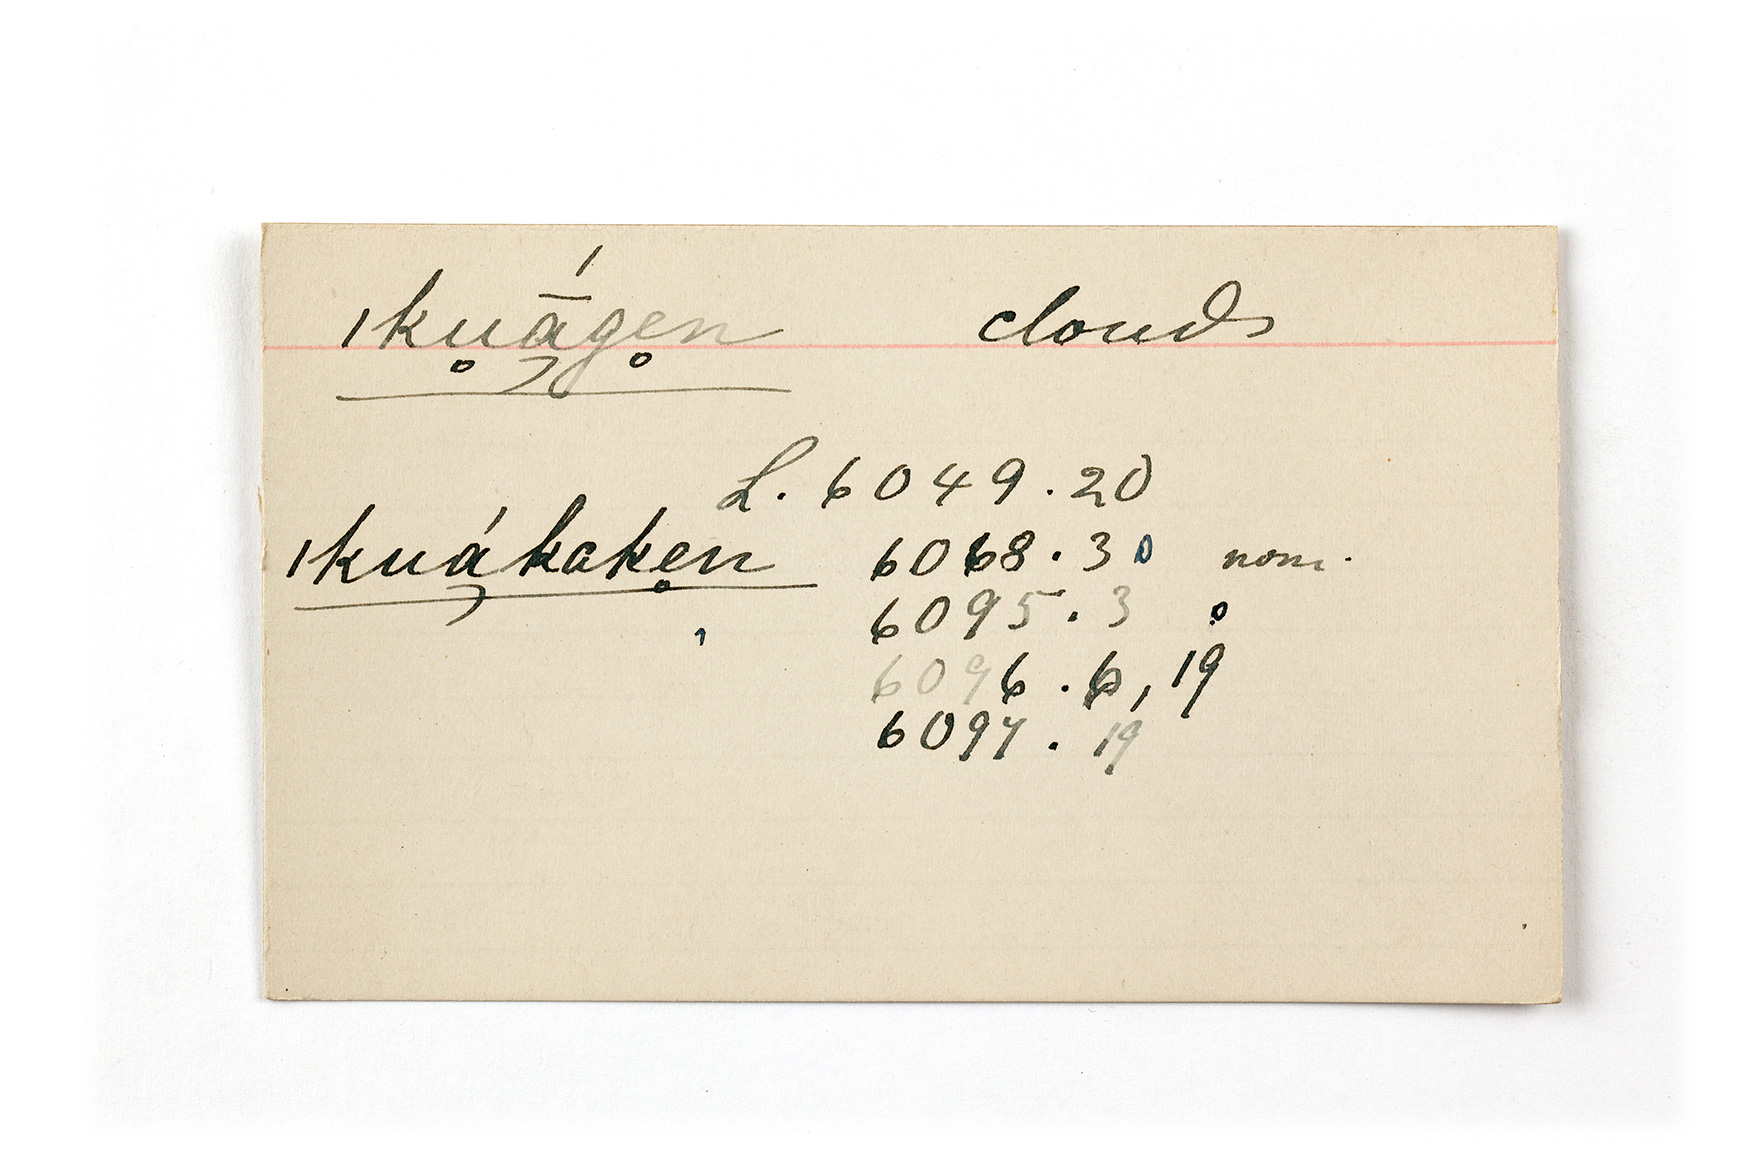 ıku̥ā́ge̥n clouds
L. 6049.20
ıkuákake̥n 6068.30 nom.
6095.3
6096.6, 19
6097.19